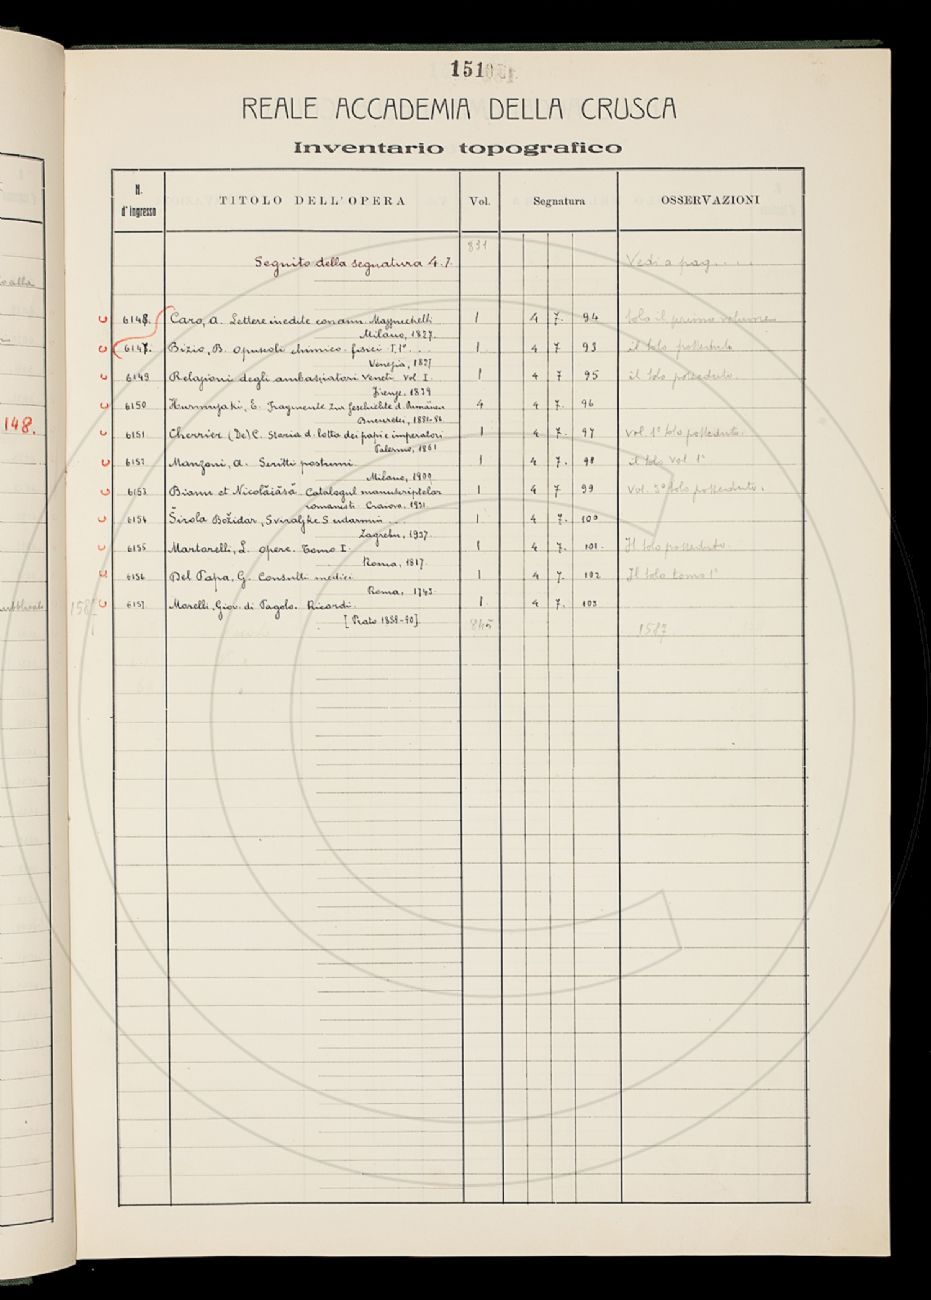 151
REALE ACCADEMIA DELLA CRUSCA
Inventario topografico
N. d'ingresso TITOLO DELL'OPERA Vol. Segnatura OSSERVAZIONI
831
Seguito della segnatura 4.7. Vedi a pag. . . .
6148. Caro, A. Lettere inedite con ann. Mazzuchelli 1 4 7. 94 solo il primo volume
Milano, 1827.
6147. Bizio, B. Opuscoli chimico-fisici T. 1°. . . 1 4 7. 93 il solo posseduto
Venezia, 1827
6149 Relazioni degli ambasciatori Veneti Vol. I. 1 4 7 95 il solo posseduto.
Firenze, 1839
6150 Hurmuzaki, E. Fragmente zur Geschichte d. Rumänen 4 4 7. 96
Bucuresci, 1881-86
148.
6151 Cherrier (De) C. Storia d. lotta dei papi e imperatori 1 4 7. 97 vol. 1° solo posseduto.
Palermo, 1861
6152 Manzoni, A. Scritti postumi. 1 4 7. 98 il solo vol 1°
Milano, 1900
6153 Bianu et Nicolăiasă Catalogul manuscriptelor 1 4 7 99 vol. 3° solo posseduto.
romanesti Craiova, 1931
6154 Širola Božidar, Sviraljke S udarnim . . 1 4 7. 100
Zagrebu, 1937.
6155 Martorelli, L. Opere. Tomo I. 1 4 7. 101. Il solo posseduto.
Roma, 1817.
6156 Del Papa, G. Consulti medici 1 4 7. 102 Il solo tomo 1°
Roma, 1743.
6157 Morelli, Giov. di Pagolo. Ricordi. 1. 4 7. 103
[Prato 1884-90]. 845 1587